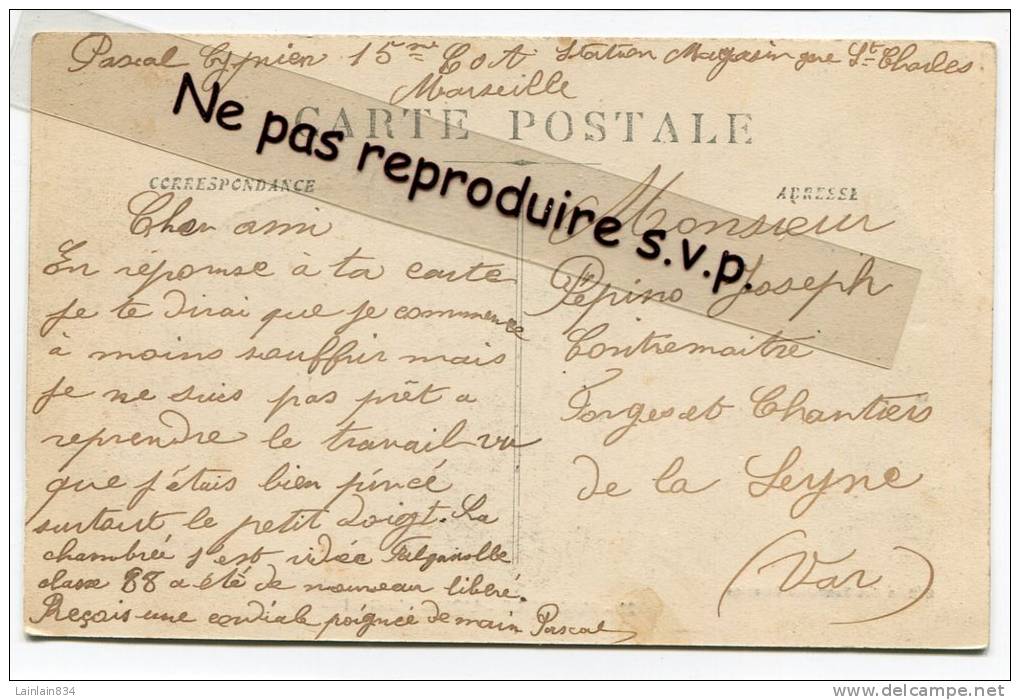 Pascal Cyprien 15me COA Station Magasin gare St Charles
Marseille
CARTE POSTALE
Ne pas reproduire s.v.p.
CORRESPONDANCE
Cher ami
En réponse à ta carte
je te dirai que je commence
à moins souffrir mais
je ne suis pas prêt a
reprendre le travail vu
que j'étais bien pincé
surtout le petit doigt. La
chambrée s'est vidée
classe 88 a été de nouveau libéré.
Reçois une cordiale poignée de main Pascal
ADRESSE
Monsieur
Pépino Joseph
Contremaitre
Forges et Chantiers
de la Seyne
(Var)
Lainlain834
www.delcampe.net